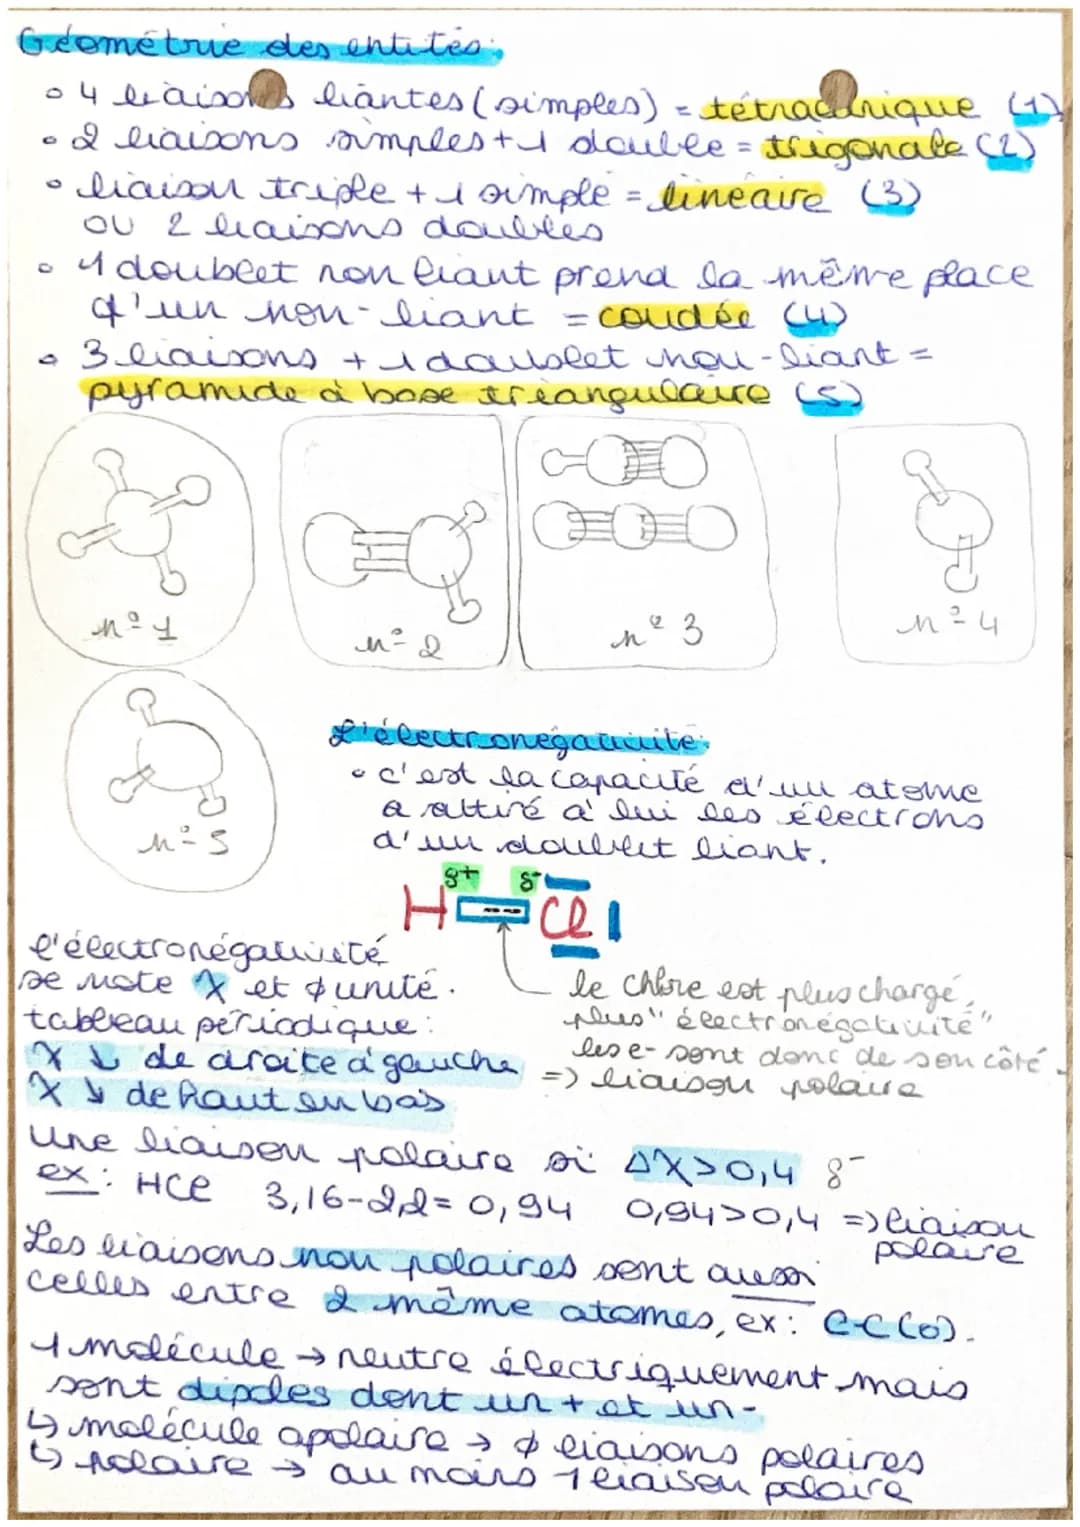 Géométrie des entités:
• 4 liaisons liantes (simples) = tétraédrique (1)
• 2 liaisons simples + 1 double = trigonale (2)
• liaison triple + 1 simple = linéaire (3)
ou 2 liaisons doubles
• 1 doublet non liant prend la même place
d'un non-liant = coudée (4)
• 3 liaisons + 1 doublet non-liant =
pyramide à base triangulaire (5)
n° 1
n° 2
n° 3
n° 4
n° 5
L'électronégativité:
• c'est la capacité d'un atome
a attiré à lui les électrons
d'un doublet liant.
δ+ δ-
H Cl
l'électronégativité
se note χ et ϕ unité.
tableau périodique:
χ ↓ de droite à gauche
χ ↓ de haut en bas
le chlore est plus chargé,
plus "électronégativité"
les e- sont donc de son côté.
=> liaison polaire
Une liaison polaire si Δχ>0,4 δ-
ex: HCl 3,16-2,2= 0,94 0,94>0,4 => liaison
polaire
Les liaisons non polaires sont aussi
celles entre 2 même atomes, ex: C-C (0).
1 molécule → neutre électriquement mais
sont dipoles dont un + et un -
↳ molécule apolaire → ϕ liaisons polaires
↳ polaire → au moins 1 liaison polaire